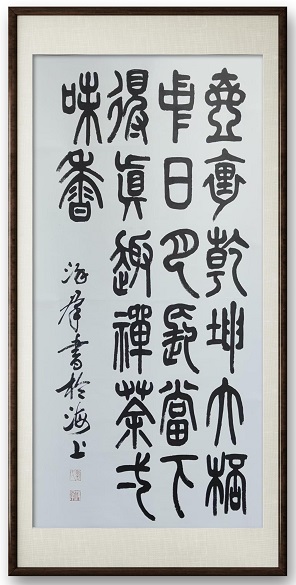 壺裏乾坤大桮
中日月長當下
得真趣禪茶弌
味香
群書於海上